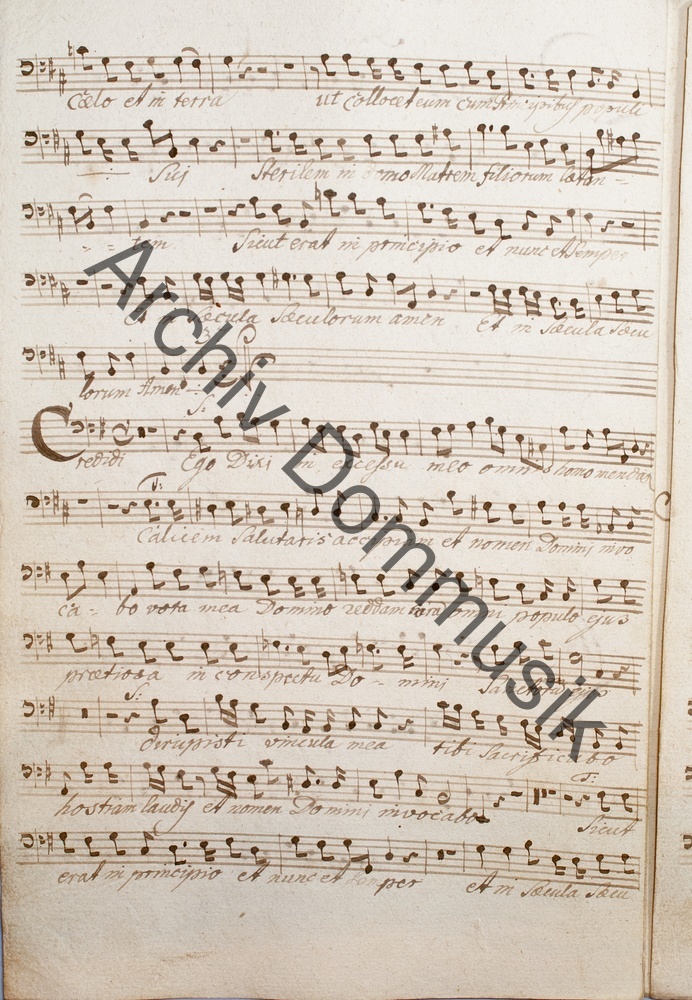 Cælo et in terra ut collocet eum cum Principibus populi
Suj Sterilem in domo Matrem filiorum lætan-
- - tem Sicut erat in principio et nunc et Semper
Sæcula Sæculorum amen et in Sæcula Sæcu
lorum Amen
S:
Credidi Ego Dixi in excessu meo omnis homo mendax
T:
Calicem Salutaris accipiam et nomen Dominj invo
ca - bo vota mea Domino reddam coram omni populo ejus
prætiosa in conspectu Do - mini Sanctorum ejus
S:
dirupisti vincula mea tibi Sacrificabo
T:
hostiam laudis et nomen Domini invocabo Sicut
erat in principio et nunc et Semper et in Sæcula Sæcu
Archiv Dommusik